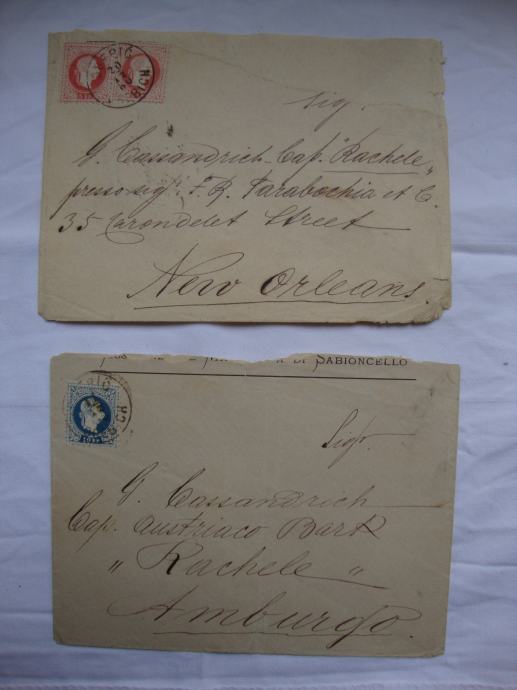 EBIĆ
BICH
Sig.
G. Cassandrich Cap. "Rachele"
presso sigʳ. F. R. Tarabochia et C.
35 Carondelet Street
New Orleans.
DI SABIONCELLO
BICH
Sigʳ.
G. Cassandrich
Cap. austriaco Bark
„ Rachele „
Amburgo.